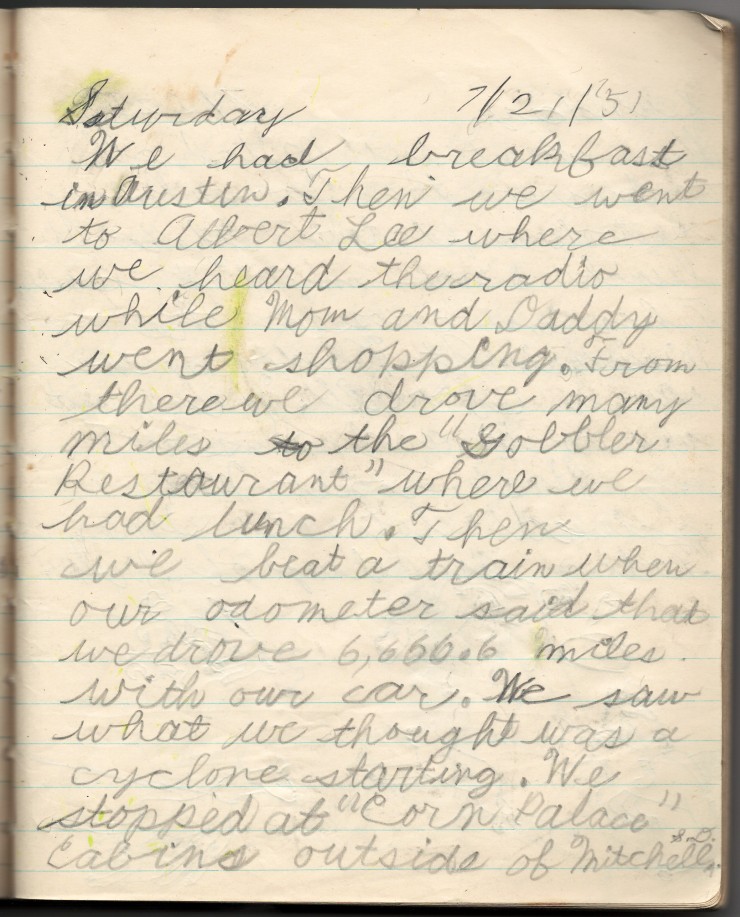 Saturday 7/21/'51
We had breakfast
in Austin. Then we went
to Albert Lee where
we heard the radio
while Mom and Daddy
went shopping. From
there we drove many
miles to the "Gobbler
Restaurant" where we
had lunch. Then
we beat a train when
our odometer said that
we drove 6,666.6 miles
with our car. We saw
what we thought was a
cyclone starting. We
stopped at "Corn Palace"
Cabins outside of Mitchell, S.D.